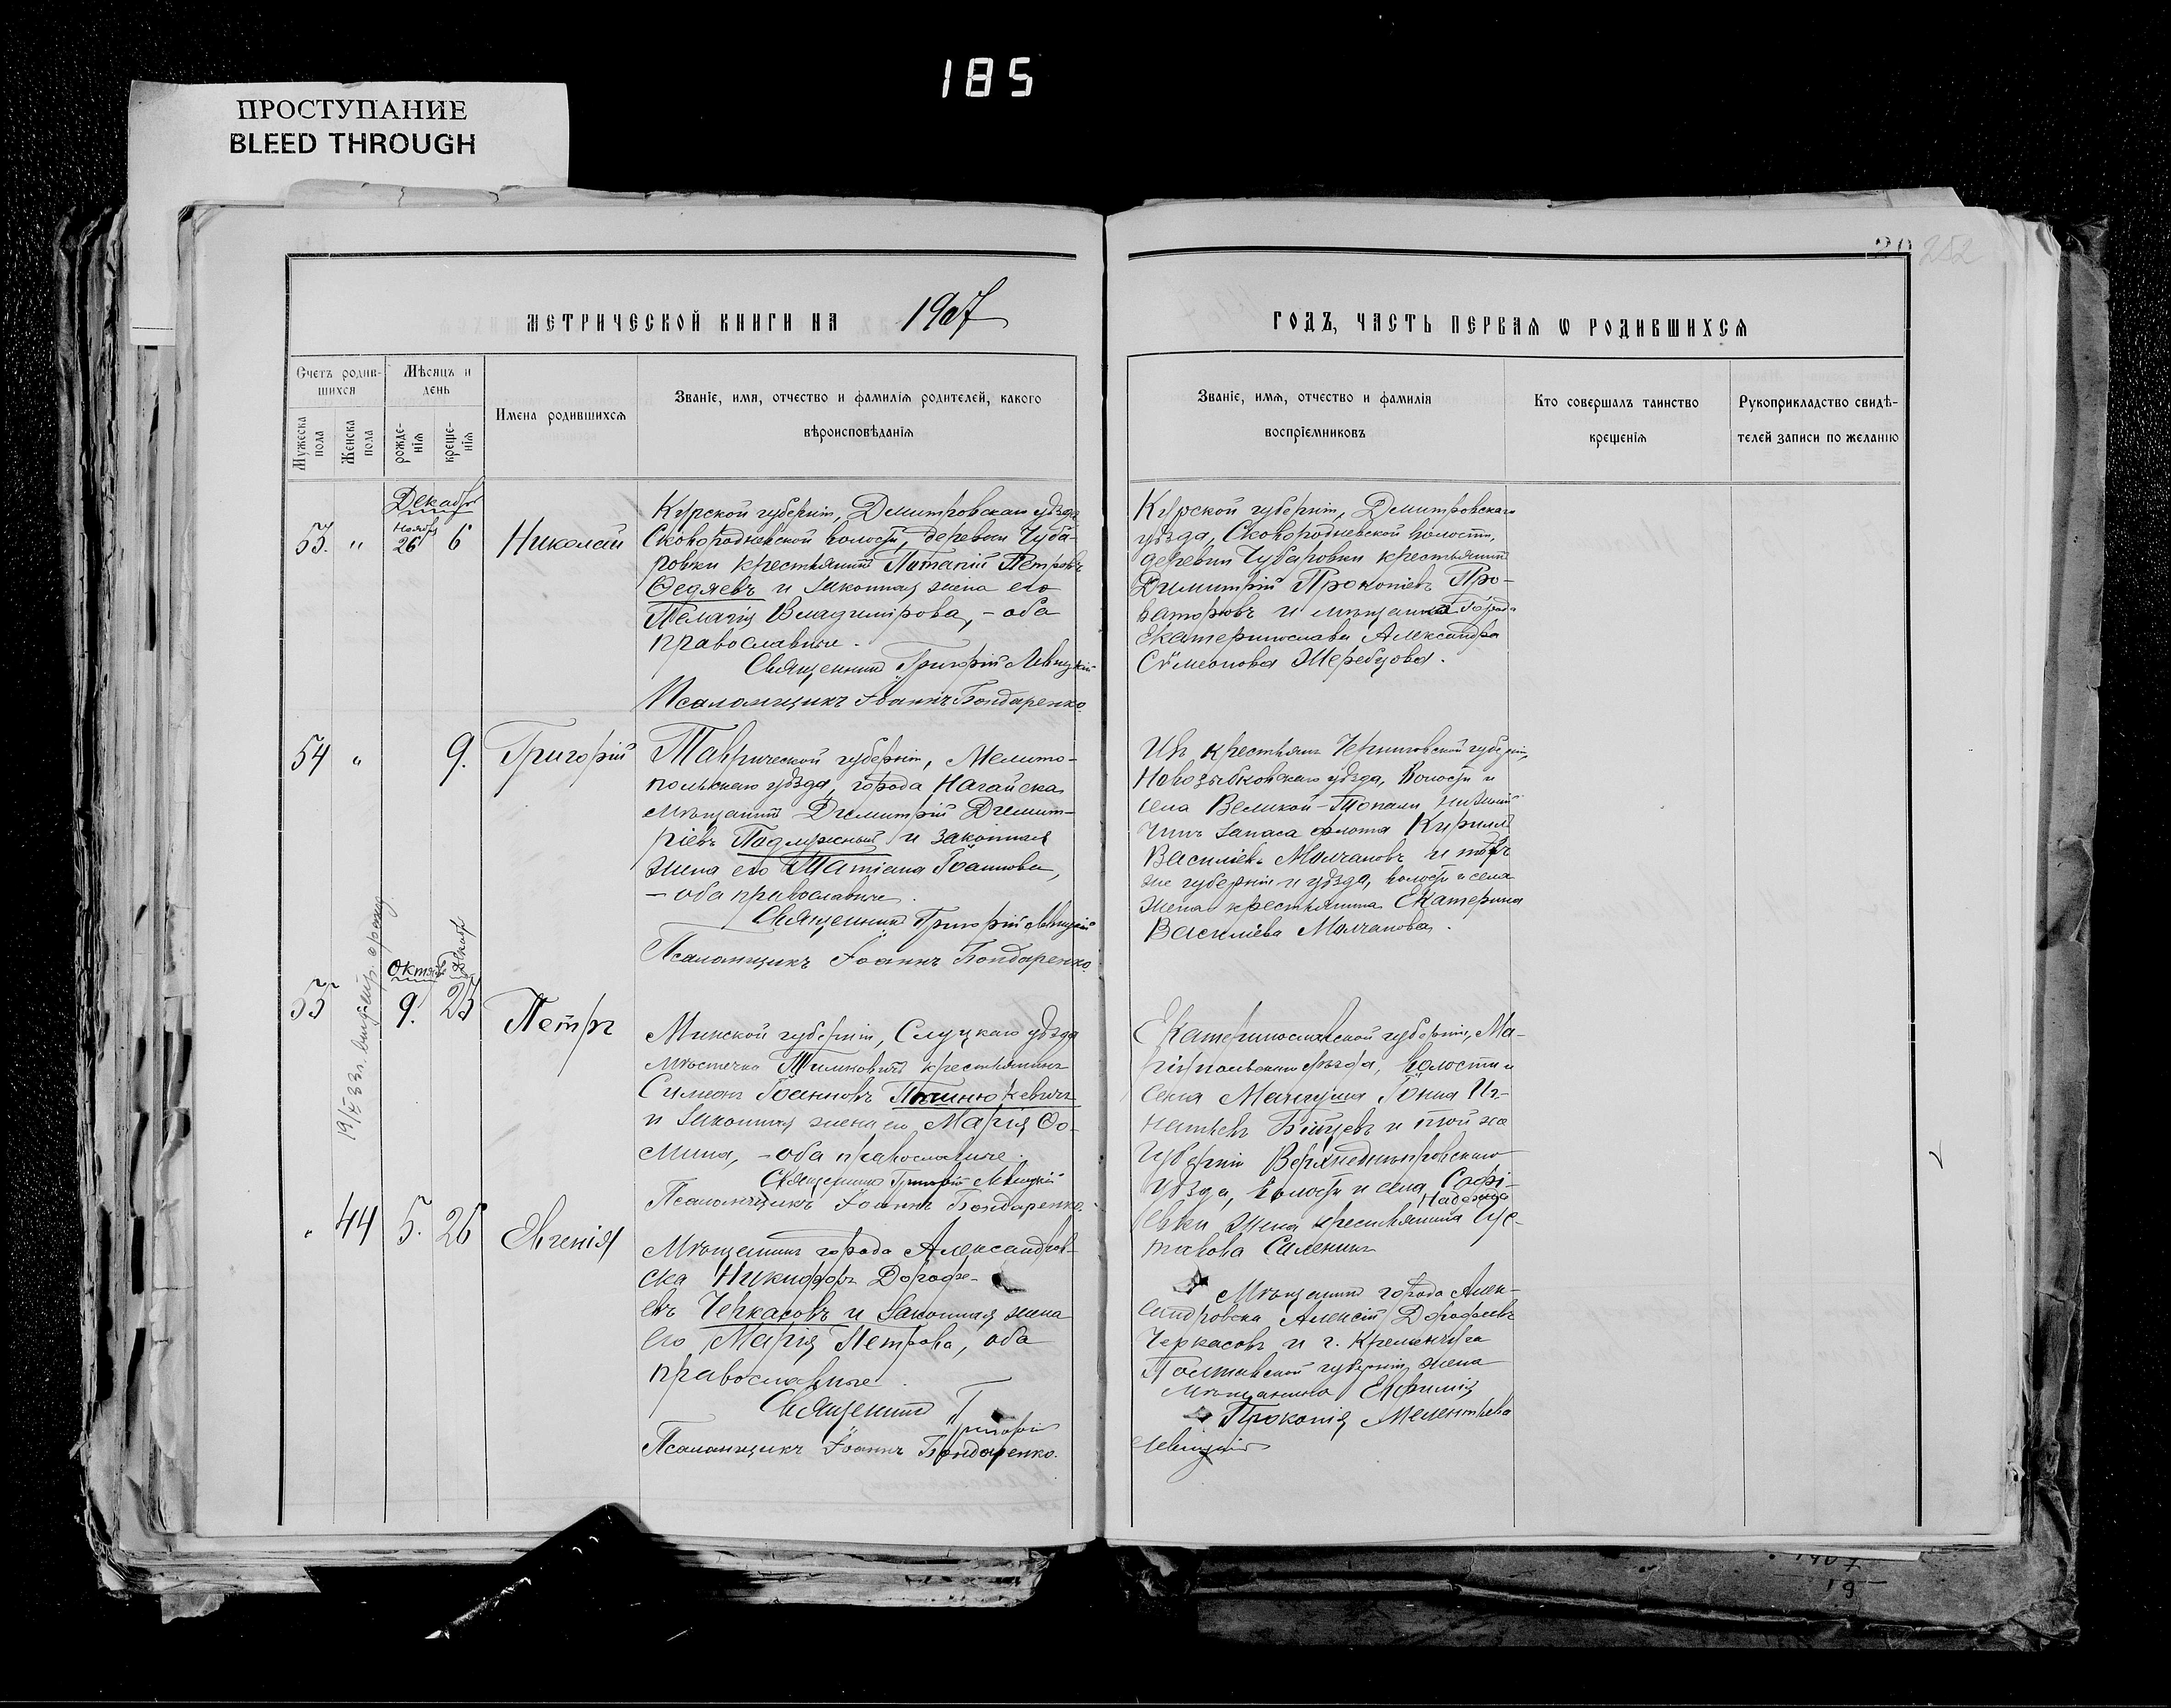 185
ПРОСТУПАНИЕ
BLEED THROUGH
252
МЕТРИЧЕСКОЙ КНИГИ НА 1907
ГОДЪ, ЧАСТЬ ПЕРВАЯ Ѡ РОДИВШИХСЯ
Счетъ родив-
шихся
Мѣсяцъ и
день
Мужеска пола
Женска пола
рожде-
нія
креще-
нія
Имена родившихся
Званіе, имя, отчество и фамилія родителей, какого
вѣроисповѣданія
Званіе, имя, отчество и фамилія
воспріемниковъ
Кто совершалъ таинство
крещенія
Рукоприкладство свидѣ-
телей записи по желанію
Декабрь
53. " Ноября 26 6 Николай
Курской губерніи, Дмитровскаго уѣзда
Сковородневской волости, деревни Чуба-
ровки крестьянинъ Потапій Петровъ
Федяевъ и законная жена его
Пелагія Владимірова, - оба
православные.
Священникъ Григорій Левицкій
Псаломщикъ Іоаннъ Бондаренко.
Курской губерніи, Дмитровскаго
уѣзда, Сковородневской волости,
деревни Чубаровки крестьянинъ
Димитрій Прокопіевъ Про-
ваторовъ и мѣщанка города
Екатеринослава Александра
Сѵмеонова Жеребцова.
54 " 9. Григорій
Таврической губерніи, Мелито-
польскаго уѣзда, города Нагайска
мѣщанинъ Димитрій Димит-
ріевъ Подлужный и законная
жена его Татіана Іоаннова,
- оба православные.
Священникъ Григорій Левицкій
Псаломщикъ Іоаннъ Бондаренко
Изъ крестьянъ Черниговской губерніи,
Новозыбковскаго уѣзда, Волости и
села Великой-Топали, нижній
чинъ запаса флота Кириллъ
Василіевъ Молчановъ и той
же губерніи и уѣзда, волости и села
жена крестьянина Екатерина
Василіева Молчанова.
55 Октября 9. 25 Петръ
Минской губерніи, Слуцкаго уѣзда
мѣстечка Тимковичъ крестьянинъ
Симеонъ Іоанновъ
и законная жена его Марія Ѳо-
мина, - оба православные.
Священникъ Григорій Левицкій
Псаломщикъ Іоаннъ Бондаренко.
Екатеринославской губерніи, Ма-
ріупольскаго уѣзда, волости и
села Мангуша Іона Иг-
натьевъ и той же
губерніи Верхнеднѣпровскаго
уѣзда, волости и села Софі-
евки жена крестьянина Надежда
44 5. 26 Евгенія
Мѣщанинъ города Александров-
ска Никифоръ Дорофе-
евъ Черкасовъ и законная жена
его Марія Петрова, оба
православные.
Священникъ Григорій
Псаломщикъ Іоаннъ Бондаренко.
Мѣщанинъ города Алек-
сандровска Алексій Дорофеевъ
Черкасовъ и г. Кременчуга
Полтавской губерніи жена
мѣщанина Евфимія
Прокопія Мелентьева
Левицкій
1907
19